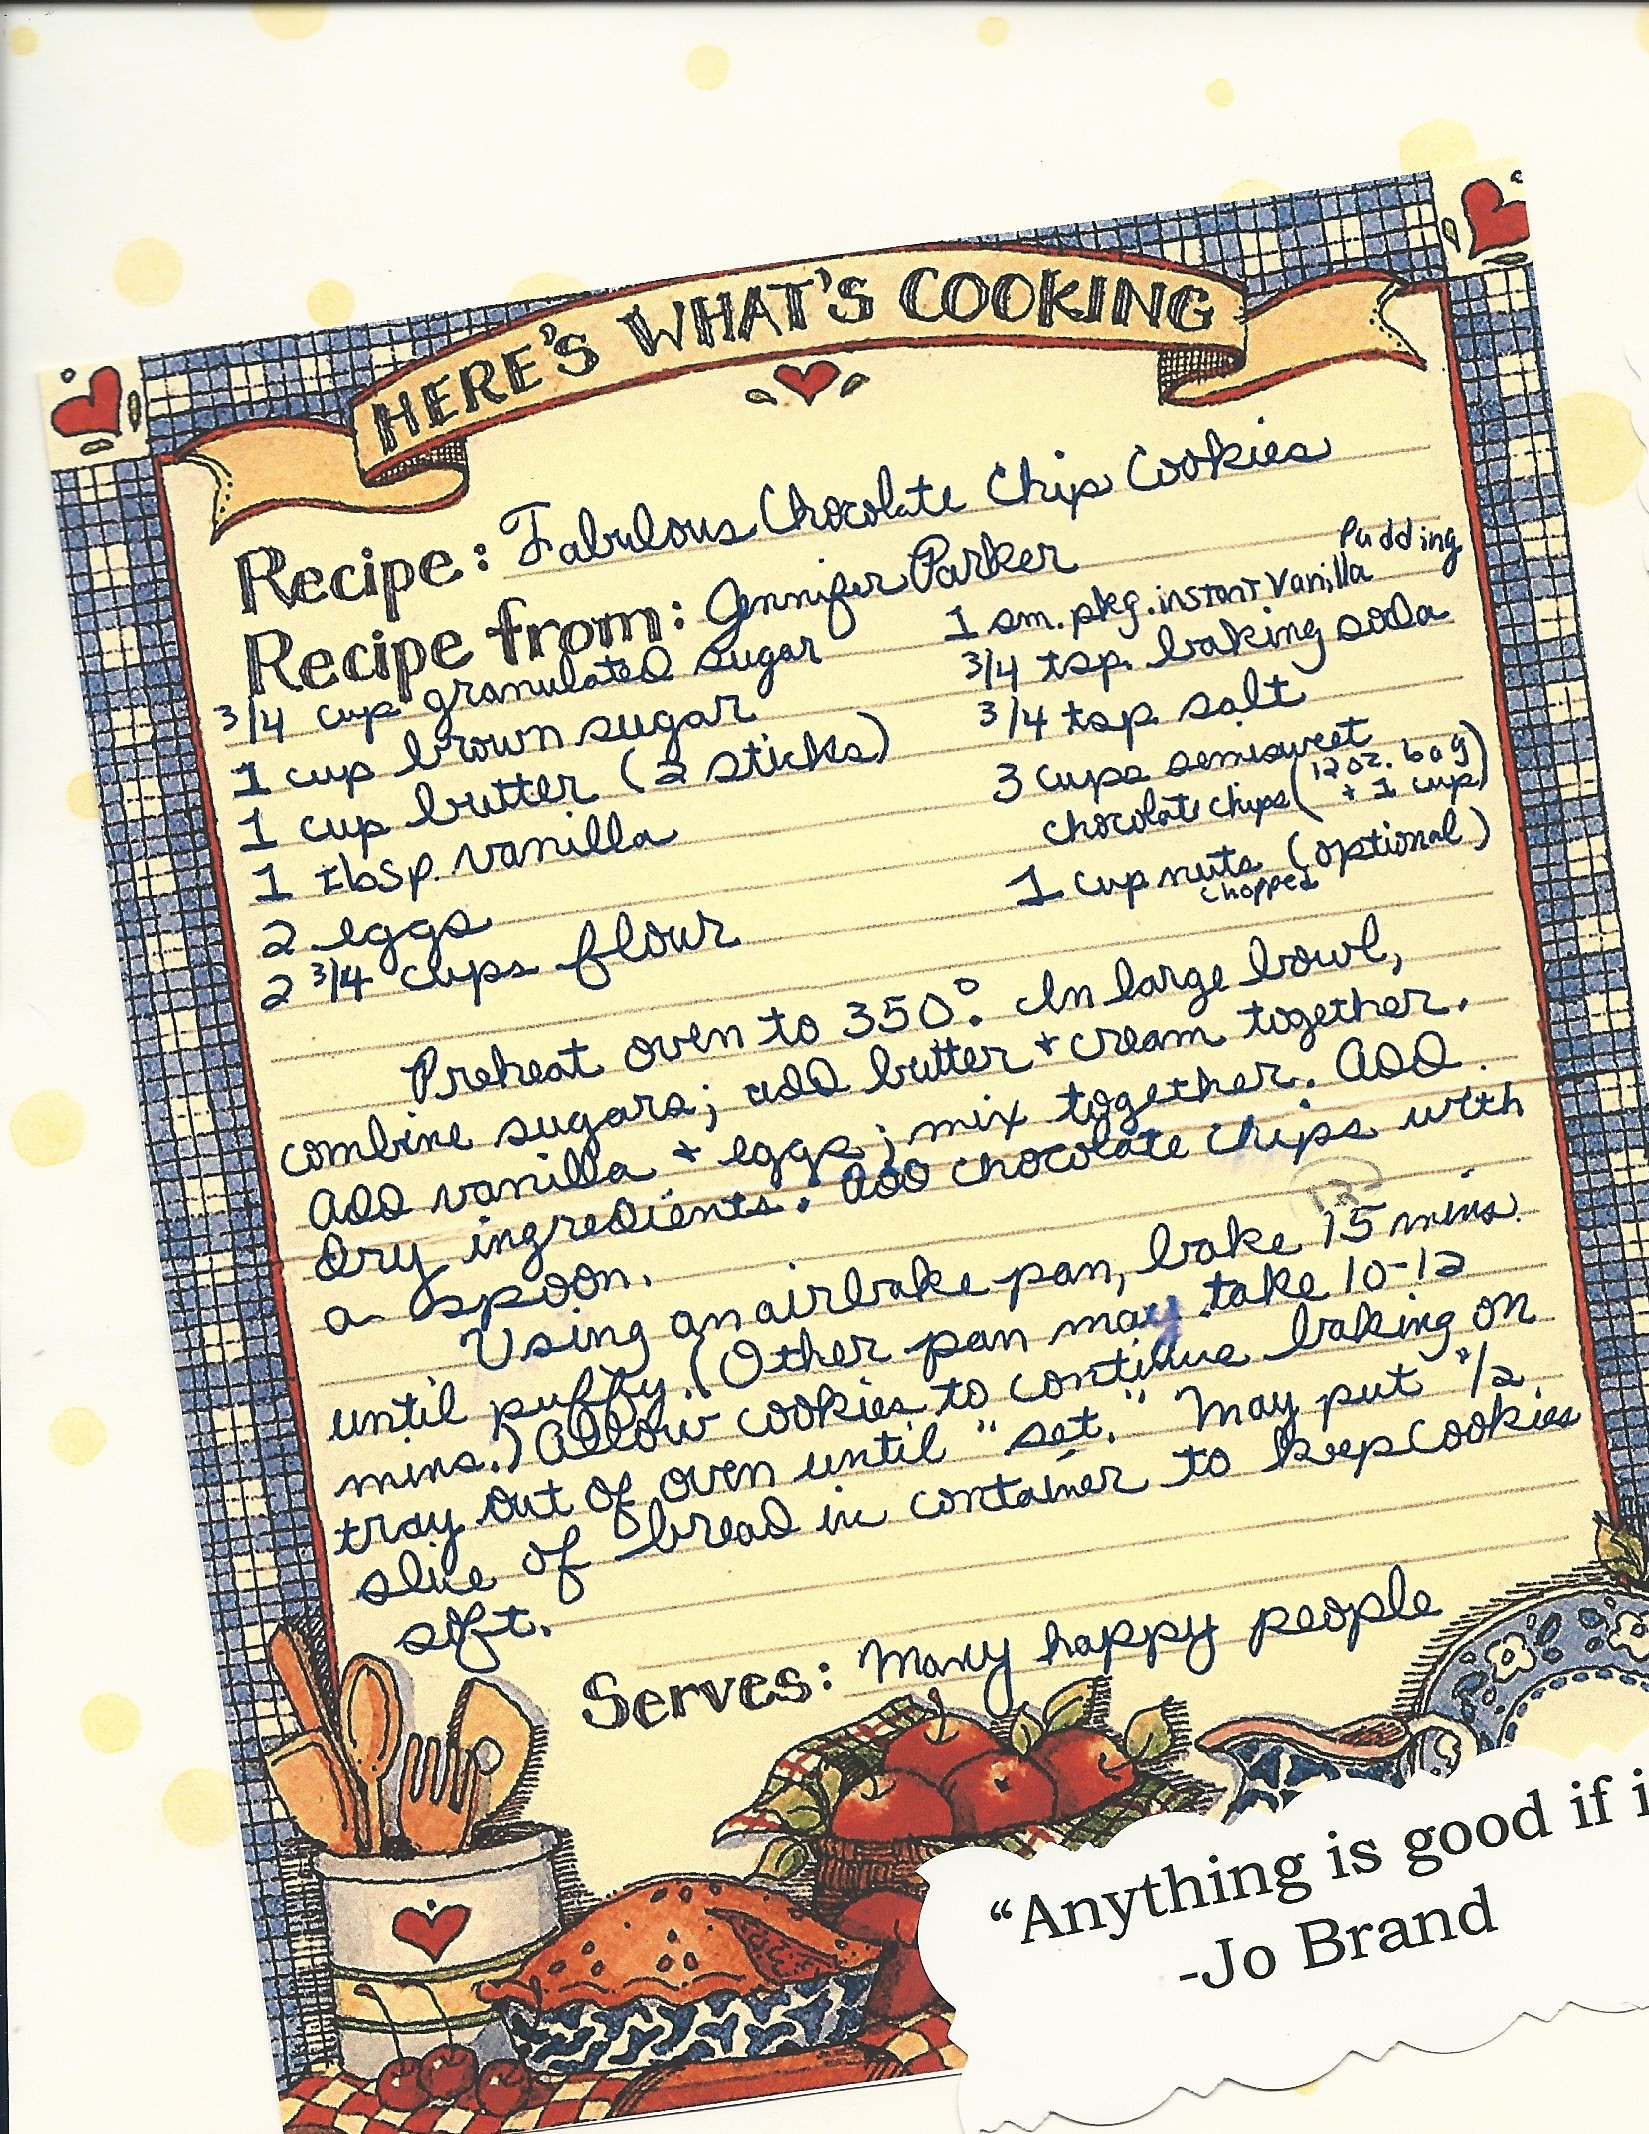 HERE'S WHAT'S COOKING
Recipe: Fabulous Chocolate Chip Cookies
Recipe from: Jennifer Parker
3/4 cup granulated sugar
1 cup brown sugar
1 cup butter (2 sticks)
1 tbsp. vanilla
2 eggs
2 3/4 cups flour
Pudding
1 sm. pkg. instant vanilla
3/4 tsp. baking soda
3/4 tsp salt
3 cups semisweet
chocolate chips (12 oz. bag
+ 1 cup)
1 cup nuts (optional)
chopped
Preheat oven to 350°. In large bowl,
combine sugars; add butter + cream together.
Add vanilla + eggs; mix together. Add
dry ingredients. Add chocolate chips with
a spoon.
12
Using an airbake pan, bake 15 mins.
until puffy. (Other pan may take 10-12
mins.) Allow cookies to continue baking on
tray out of oven until "set." May put 1/2
slice of bread in container to keep cookies
soft.
Serves: Many happy people
"Anything is good if i
-Jo Brand